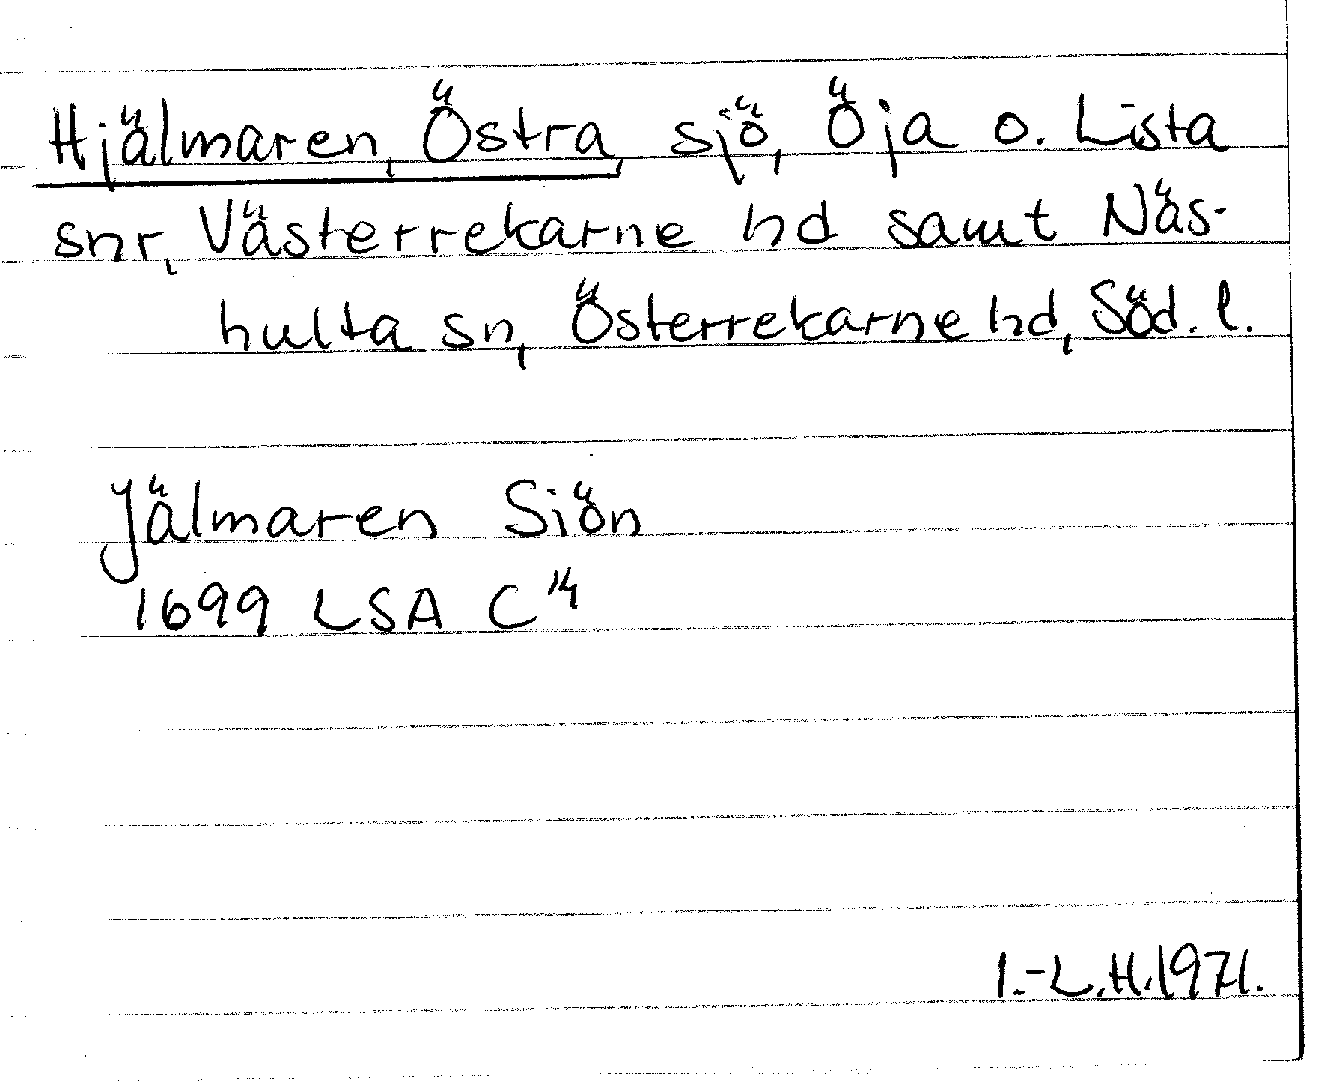 Hjälmaren, Östra, sjö, Öja o. Lista
snr, Västerrekarne hd samt Näs-
hulta sn, Österrekarne hd, Söd. l.
Jälmaren Siön
1699 LSA C 14
I.-L.H. 1971.